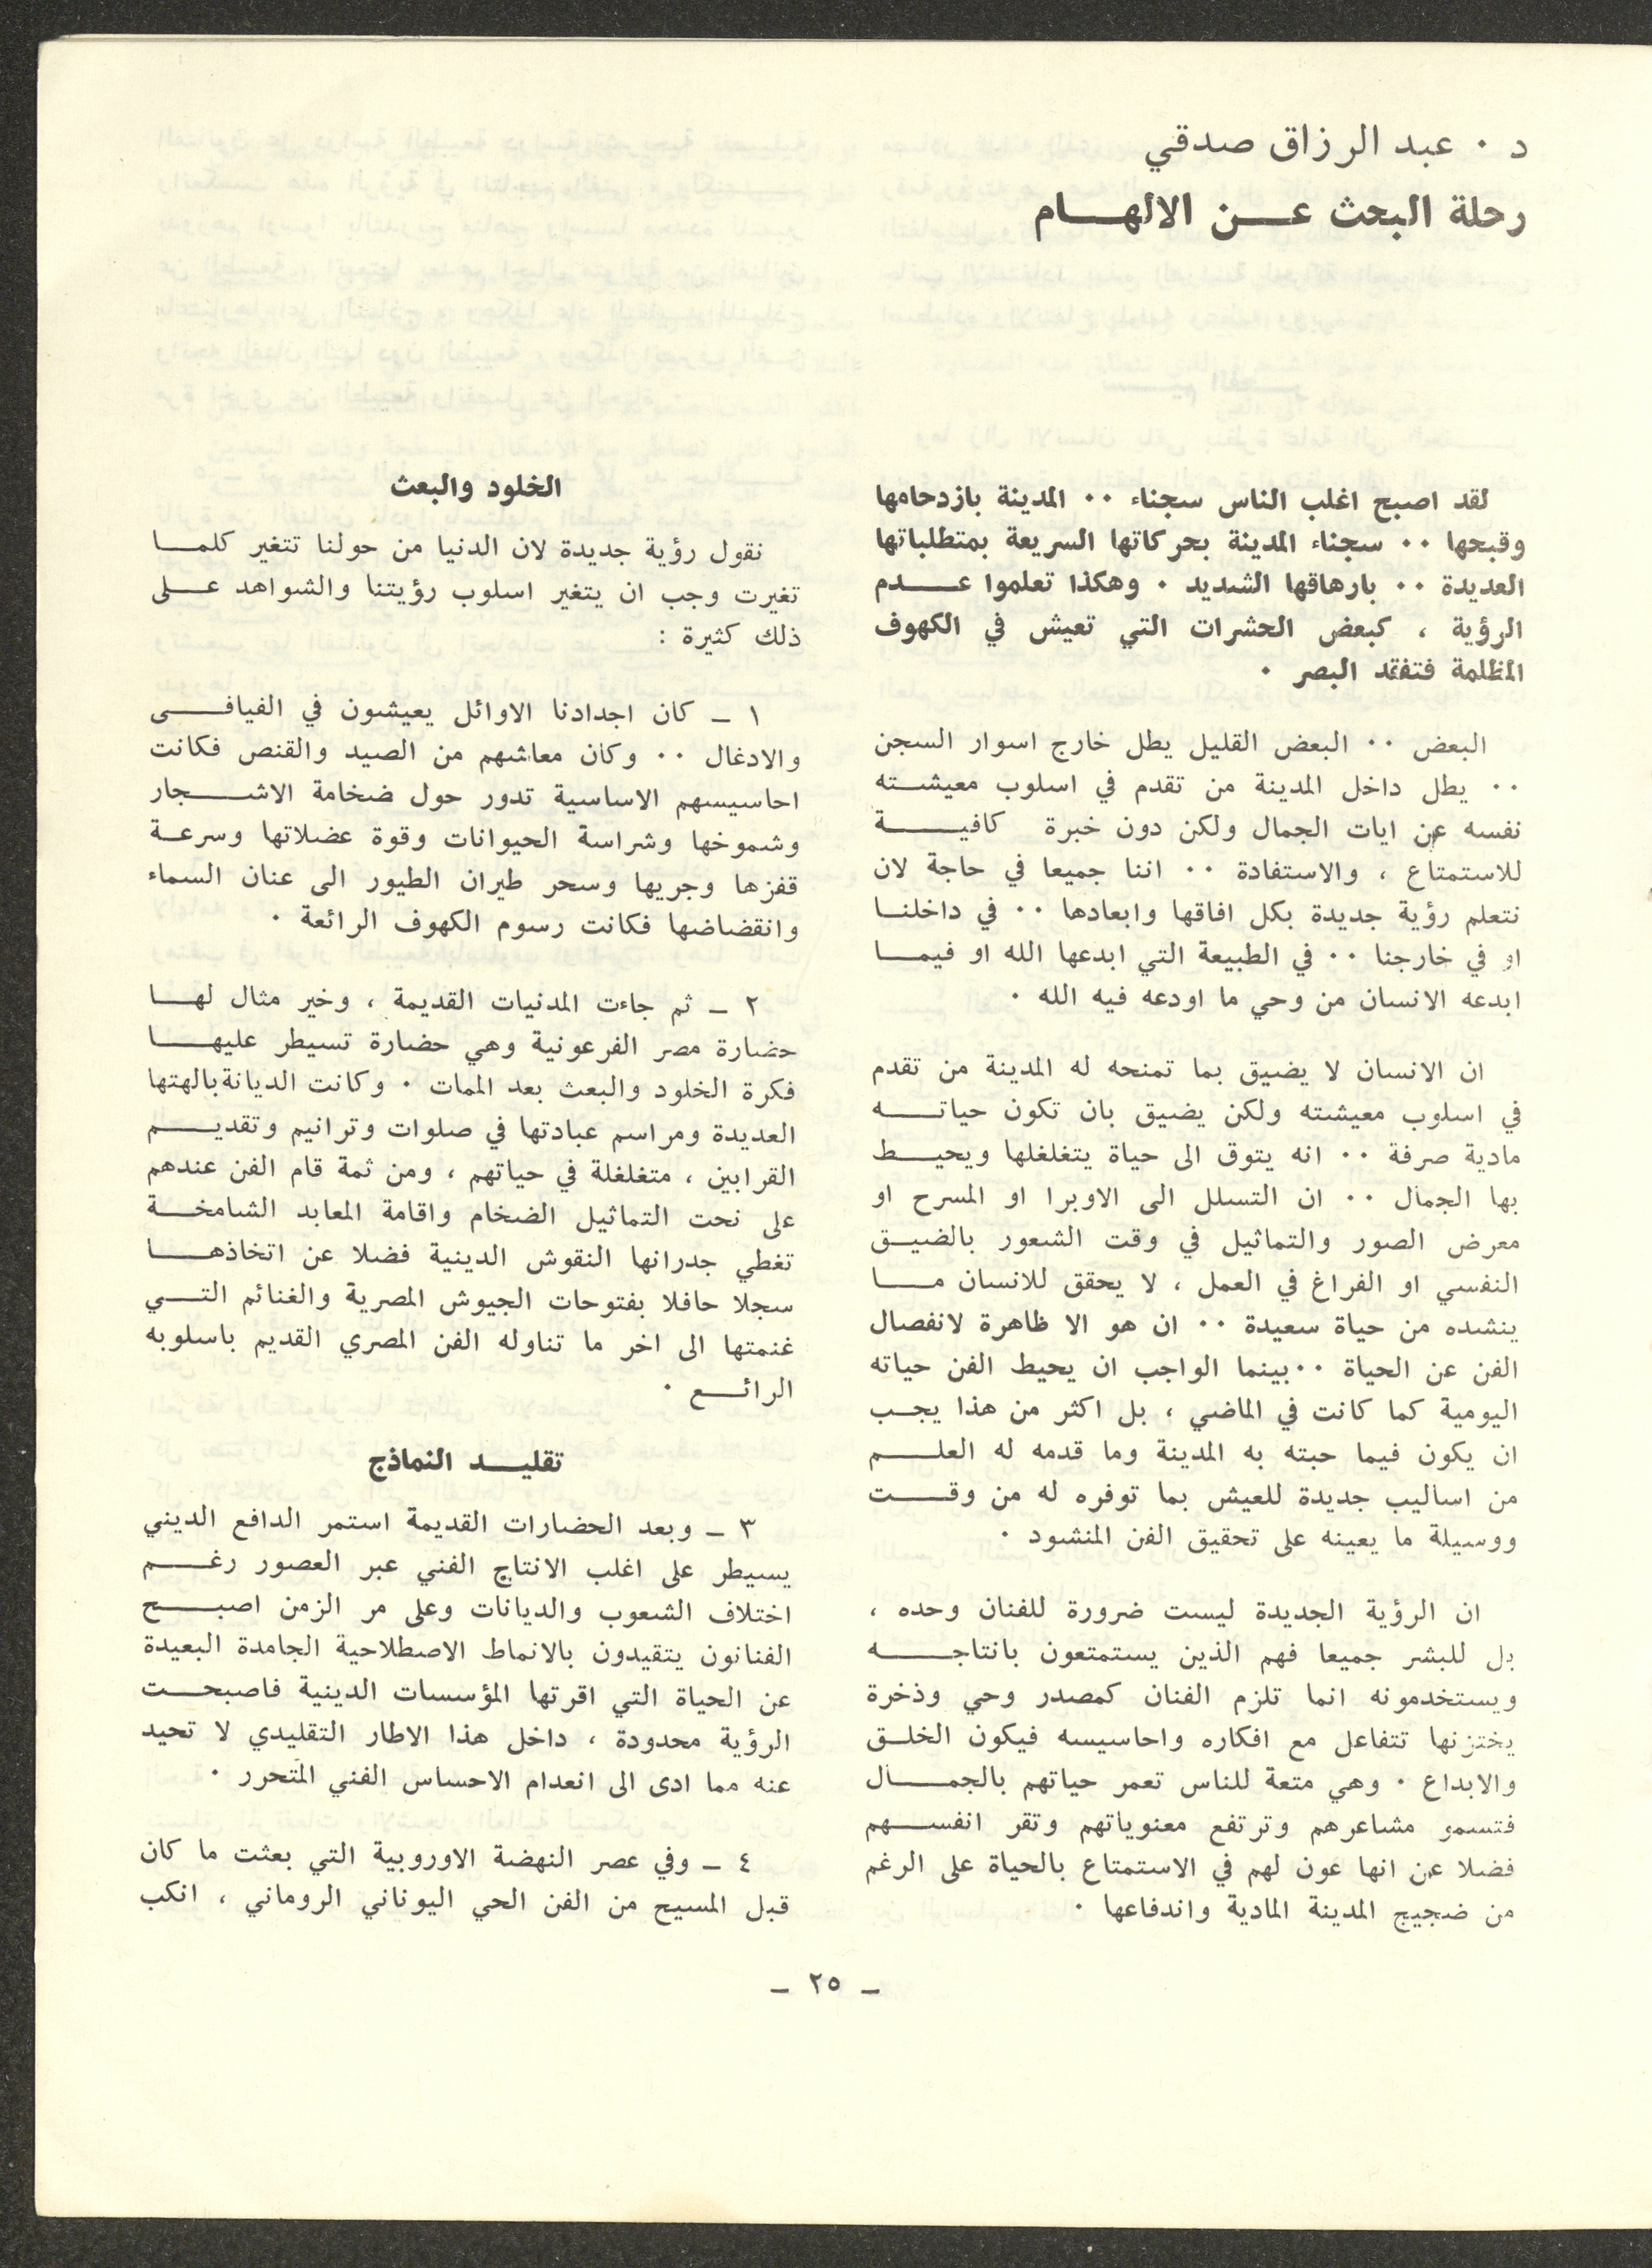 د ٠ عبد الرزاق صدقي
رحلة البحث عن الالهام
لقد اصبح اغلب الناس سجناء ٠٠ المدينة بازدحامها
وقبحها ٠٠ سجناء المدينة بحركاتها السريعة بمتطلباتها
العديدة ٠٠ بارهاقها الشديد ٠ وهكذا تعلموا عدم
الرؤية ، كبعض الحشرات التي تعيش في الكهوف
المظلمة فتفقد البصر ٠
البعض ٠٠ البعض القليل يطل خارج اسوار السجن
٠٠ يطل داخل المدينة من تقدم في اسلوب معيشته
نفسه عن ايات الجمال ولكن دون خبرة كافية
للاستمتاع ، والاستفادة ٠٠ اننا جميعا في حاجة لان
نتعلم رؤية جديدة بكل افاقها وابعادها ٠٠ في داخلنا
او في خارجنا ٠٠ في الطبيعة التي ابدعها الله او فيما
ابدعه الانسان من وحي ما اودعه فيه الله ٠
ان الانسان لا يضيق بما تمنحه له المدينة من تقدم
في اسلوب معيشته ولكن يضيق بان تكون حياته
مادية صرفة ٠٠ انه يتوق الى حياة يتغلغلها ويحيط
بها الجمال ٠٠ ان التسلل الى الاوبرا او المسرح او
معرض الصور والتماثيل في وقت الشعور بالضيق
النفسي او الفراغ في العمل ، لا يحقق للانسان ما
ينشده من حياة سعيدة ٠٠ ان هو الا ظاهرة لانفصال
الفن عن الحياة ٠٠بينما الواجب ان يحيط الفن حياته
اليومية كما كانت في الماضي ، بل اكثر من هذا يجب
ان يكون فيما حبته به المدينة وما قدمه له العلم
من اساليب جديدة للعيش بما توفره له من وقت
ووسيلة ما يعينه على تحقيق الفن المنشود ٠
ان الرؤية الجديدة ليست ضرورة للفنان وحده ،
بل للبشر جميعا فهم الذين يستمتعون بانتاجه
ويستخدمونه انما تلزم الفنان كمصدر وحي وذخرة
يختزنها تتفاعل مع افكاره واحاسيسه فيكون الخلق
والابداع ٠ وهي متعة للناس تعمر حياتهم بالجمال
فتسمو مشاعرهم وترتفع معنوياتهم وتقر انفسهم
فضلا عن انها عون لهم في الاستمتاع بالحياة على الرغم
من ضجيج المدينة المادية واندفاعها ٠
الخلود والبعث
نقول رؤية جديدة لان الدنيا من حولنا تتغير كلما
تغيرت وجب ان يتغير اسلوب رؤيتنا والشواهد على
ذلك كثيرة :
١ ـ كان اجدادنا الاوائل يعيشون في الفيافى
والادغال ٠٠ وكان معاشهم من الصيد والقنص فكانت
احاسيسهم الاساسية تدور حول ضخامة الاشجار
وشموخها وشراسة الحيوانات وقوة عضلاتها وسرعة
قفزها وجريها وسحر طيران الطيور الى عنان السماء
وانقضاضها فكانت رسوم الكهوف الرائعة ٠
٢ ـ ثم جاءت المدنيات القديمة ، وخير مثال لها
حضارة مصر الفرعونية وهي حضارة تسيطر عليها
فكرة الخلود والبعث بعد الممات ٠ وكانت الديانة بالهتها
العديدة ومراسم عبادتها في صلوات وترانيم وتقديم
القرابين ، متغلغلة في حياتهم ، ومن ثمة قام الفن عندهم
على نحت التماثيل الضخام واقامة المعابد الشامخة
تغطي جدرانها النقوش الدينية فضلا عن اتخاذها
سجلا حافلا بفتوحات الجيوش المصرية والغنائم التي
غنمتها الى اخر ما تناوله الفن المصري القديم باسلوبه
الرائع ٠
تقليد النماذج
٣ ـ وبعد الحضارات القديمة استمر الدافع الديني
يسيطر على اغلب الانتاج الفني عبر العصور رغم
اختلاف الشعوب والديانات وعلى مر الزمن اصبح
الفنانون يتقيدون بالانماط الاصطلاحية الجامدة البعيدة
عن الحياة التي اقرتها المؤسسات الدينية فاصبحت
الرؤية محدودة ، داخل هذا الاطار التقليدي لا تحيد
عنه مما ادى الى انعدام الاحساس الفني المتحرر ٠
٤ ـ وفي عصر النهضة الاوروبية التي بعثت ما كان
قبل المسيح من الفن الحي اليوناني الروماني ، انكب
ـ ٢٥ ـ